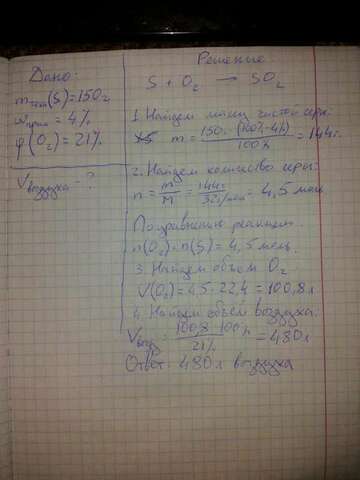 Дано:
mтехн(S)=150г
wприм=4%
φ(O₂)=21%
Vвоздуха=?
Решение
S + O₂ → SO₂
1. Найдем массу чистой серы:
m = 150г·(100%-4%) / 100% = 144г.
2. Найдем количество серы:
n = m/M = 144г / 32г/моль = 4,5 моль
По уравнению реакции
n(O₂)=n(S)=4,5 моль.
3. Найдем объем O₂
V(O₂)=4,5·22,4=100,8л
4. Найдем объем воздуха.
Vвозд = 100,8·100% / 21% = 480л
Ответ: 480л воздуха